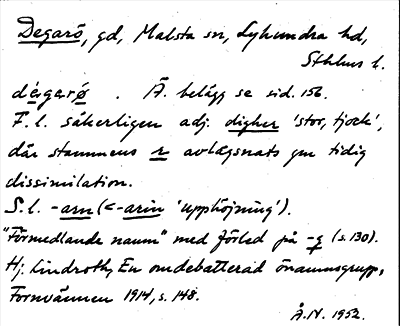 Degarö, gd, Malsta sn, Lyhundra hd,
Sthlms l.
dégarø . Ä. belägg se sid. 156.
F. l. säkerligen adj. digher 'stor, tjock',
där stammens r avlägsnats gm tidig
dissimilation.
S. l. -arn (<-arin 'upphöjning').
"Förmedlande namn" med förled på -g (s. 130).
Hj. Lindroth, En omdebatterad önamnsgrupp,
Fornvännen 1914, s. 148.
Å. N. 1952.